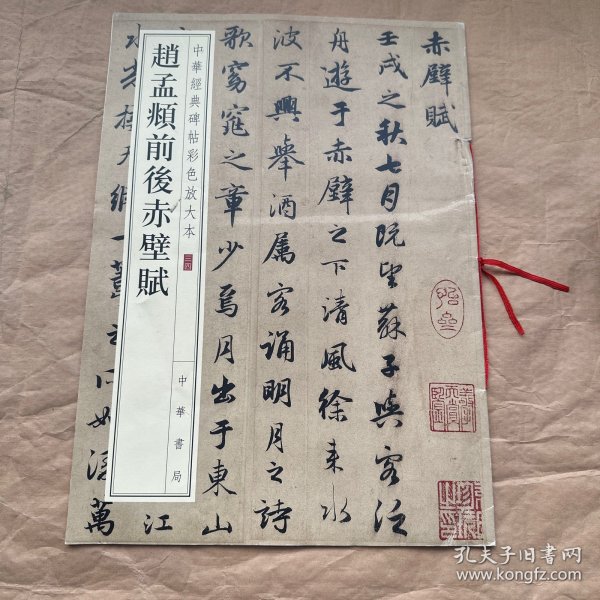 赤壁賦
壬戌之秋七月既望蘇子與客泛
舟遊于赤壁之下清風徐来水
波不興舉酒属客誦明月之詩
歌窈窕之章少焉月出于東山
江
萬
中華經典碑帖彩色放大本 三四
趙孟頫前後赤壁賦
中華書局
孔夫子旧书网
www.kongfz.com